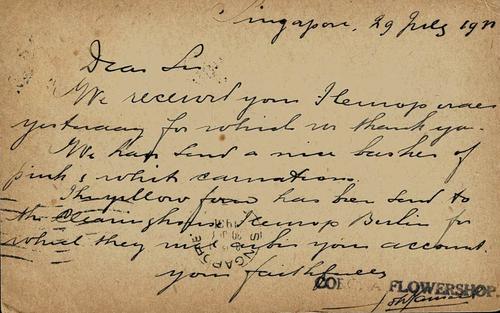 Singapore, 29 July
Dear Sir
We received your Fleurop order
yesterday for which we thank you.
We have send a nice basket of
pink & white carnation.
The yellow form has been send to
the Clearinghouse Fleurop Berlin for
what they may your account.
your faithfully
FLOWERSHOP
SINGAPORE